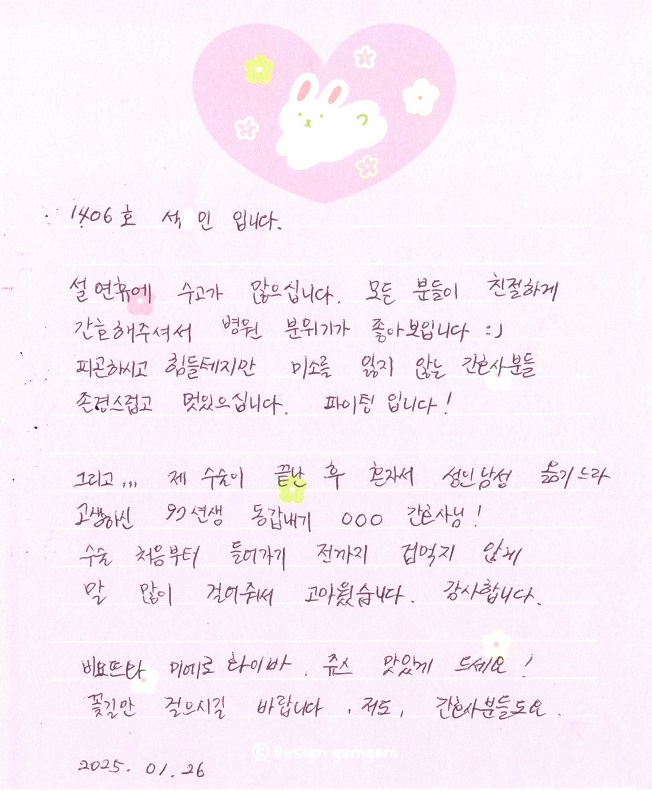 1406호 석 인 입니다.
설 연휴에 수고가 많으십니다. 모든 분들이 친절하게
간호해주셔서 병원 분위기가 좋아보입니다 :)
피곤하시고 힘들테지만 미소를 잃지 않는 간호사분들
존경스럽고 멋있으십니다. 파이팅 입니다!
그리고,,, 제 수술이 끝난 후 혼자서 성인남성 옮기느라
고생하신 90년생 동갑내기 ○○○ 간호사님!
수술 처음부터 들어가기 전까지 겁먹지 않게
말 많이 걸어주셔서 고마웠습니다. 감사합니다.
비요뜨랑 미에로 화이바, 쥬스 맛있게 드세요!
꽃길만 걸으시길 바랍니다, 저도, 간호사분들도요.
© Design gomgom
2025. 01. 26